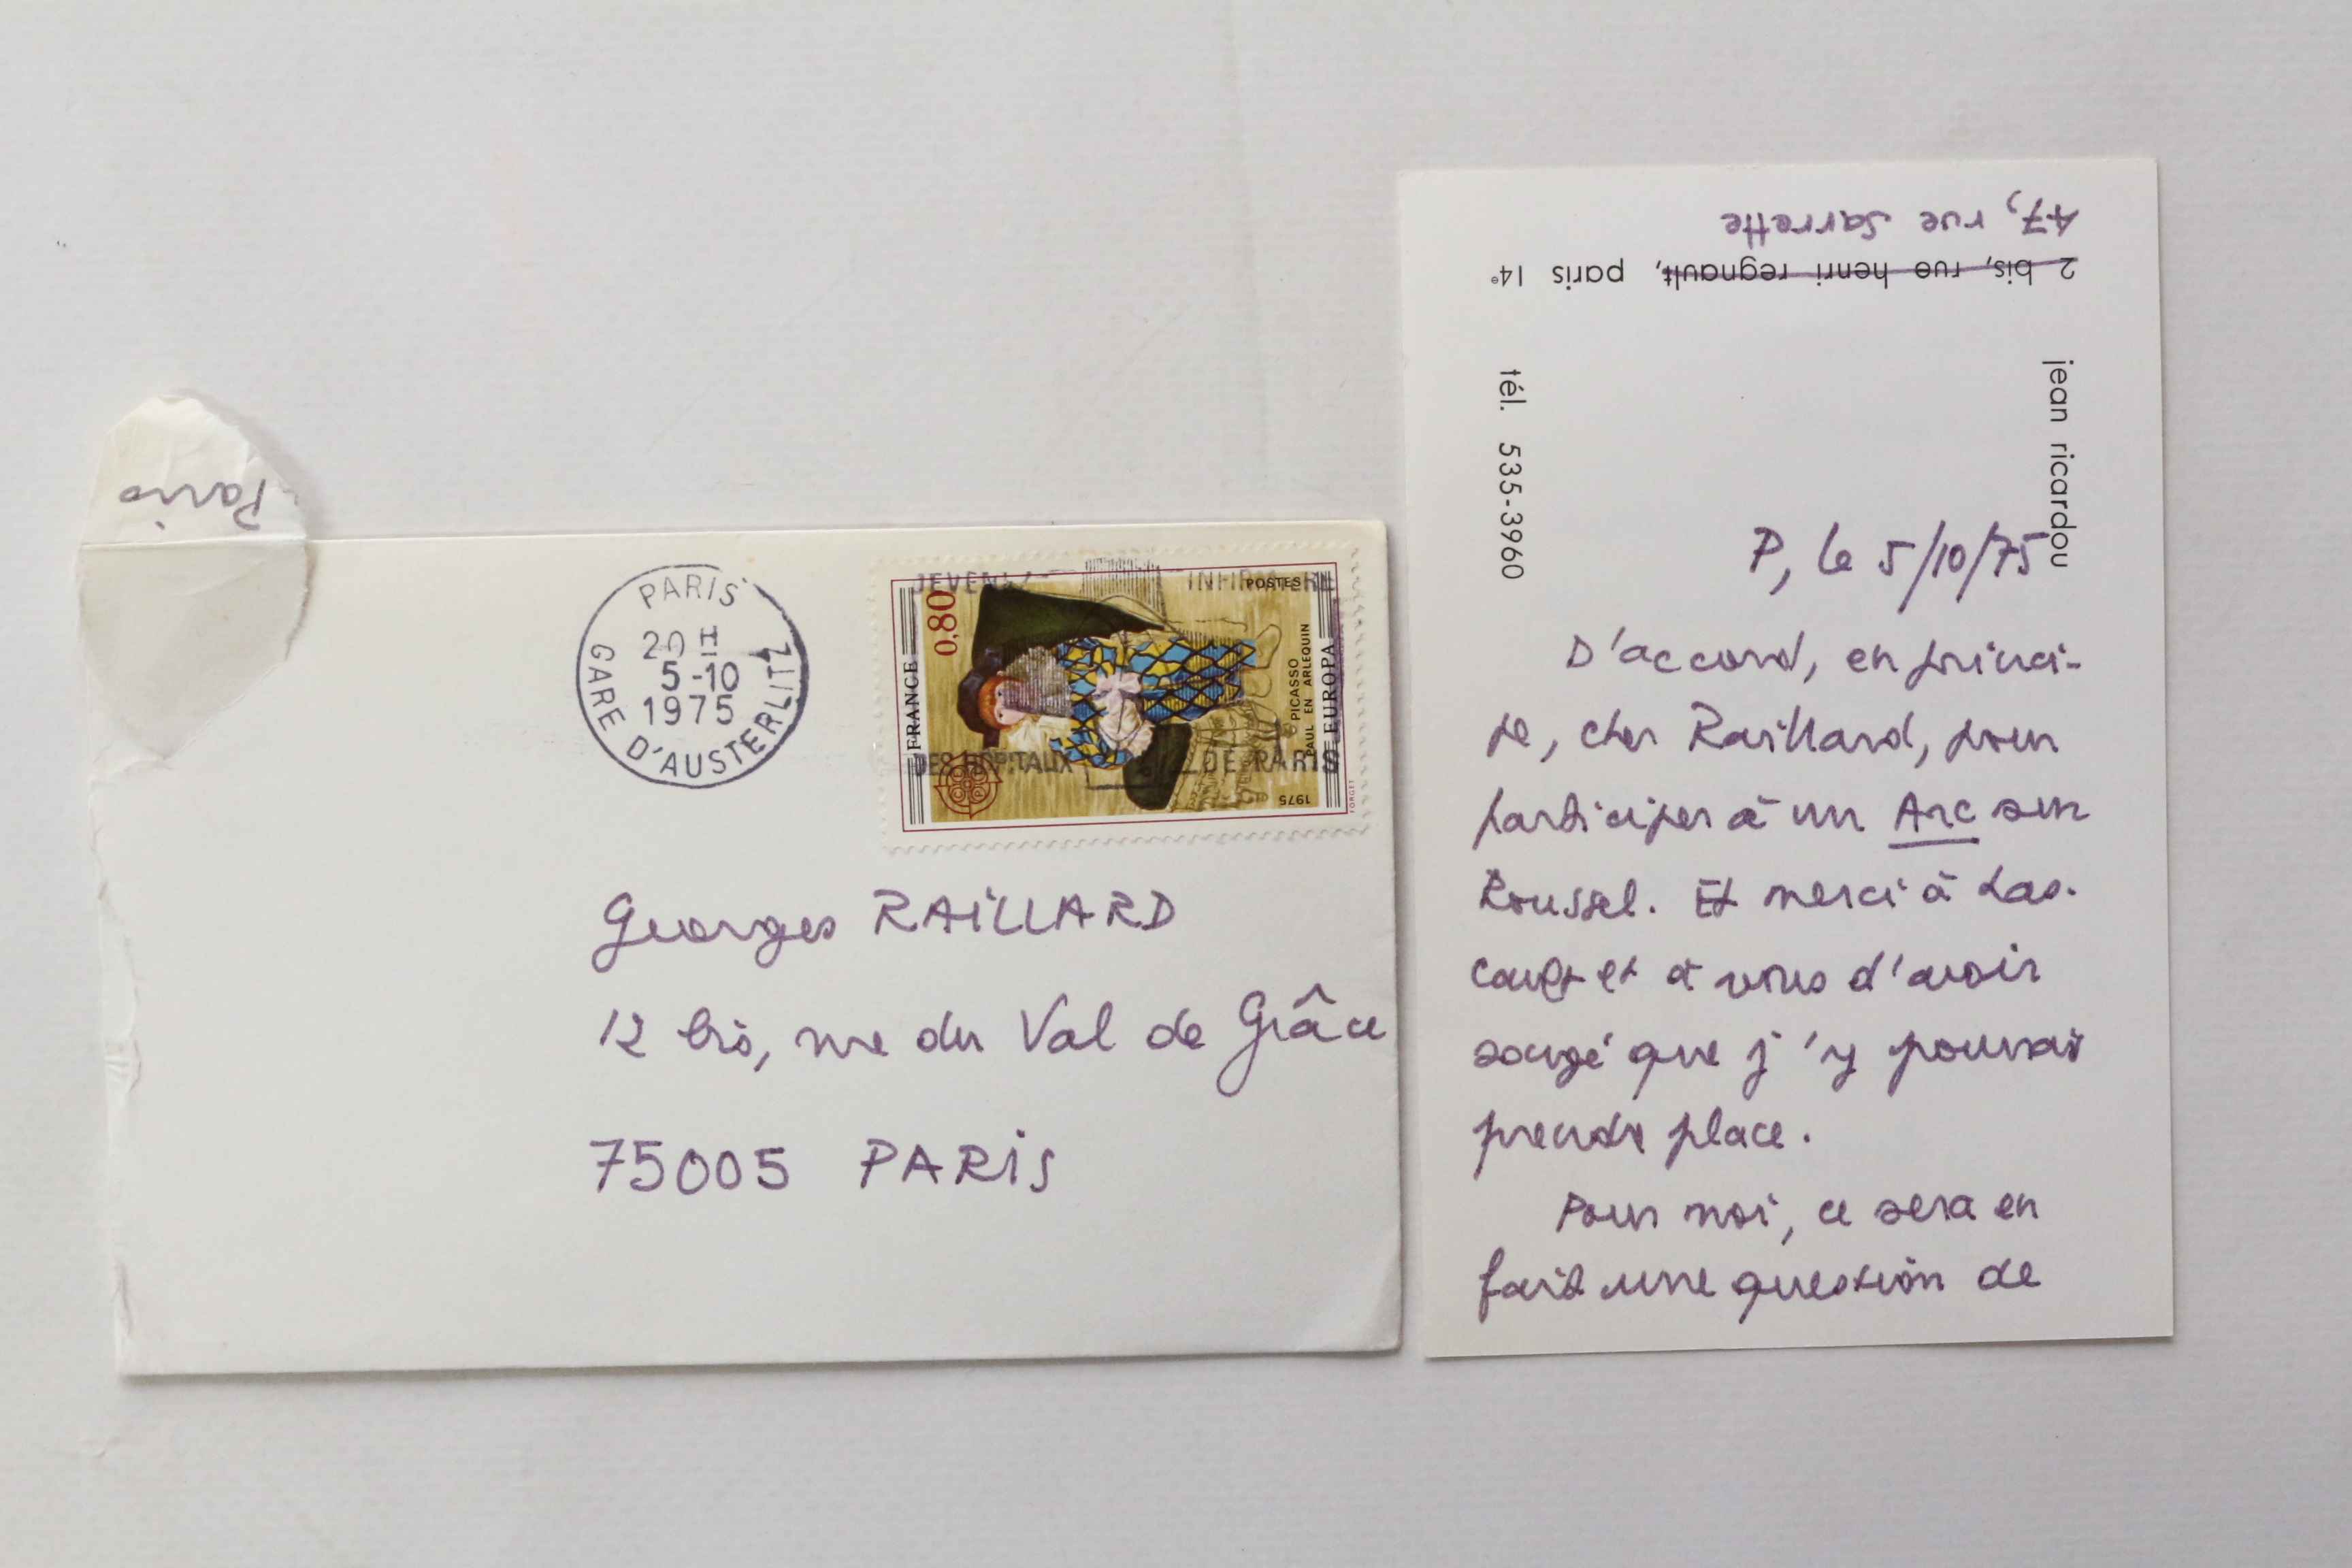 Paris
PARIS
20 H
5-10
1975
GARE D'AUSTERLITZ
DEVENEZ INFIRMIERE
DES HOPITAUX DE PARIS
FRANCE
0,80
POSTES
PICASSO
PAUL EN ARLEQUIN
EUROPA
1975
FORGET
Georges RAiLLARD
12 bis, rue du Val de Grâce
75005 PARiS
47, rue Sarrette
2 bis, rue henri regnault, paris 14e
jean ricardou
tél. 535-3960
P, le 5/10/75
D'accord, en princi-
pe, cher Raillard, pour
participer à un Arc sur
Roussel. Et merci à Las-
cault et à vous d'avoir
songé que j'y pouvais
prendre place.
Pour moi, ce sera en
fait une question de